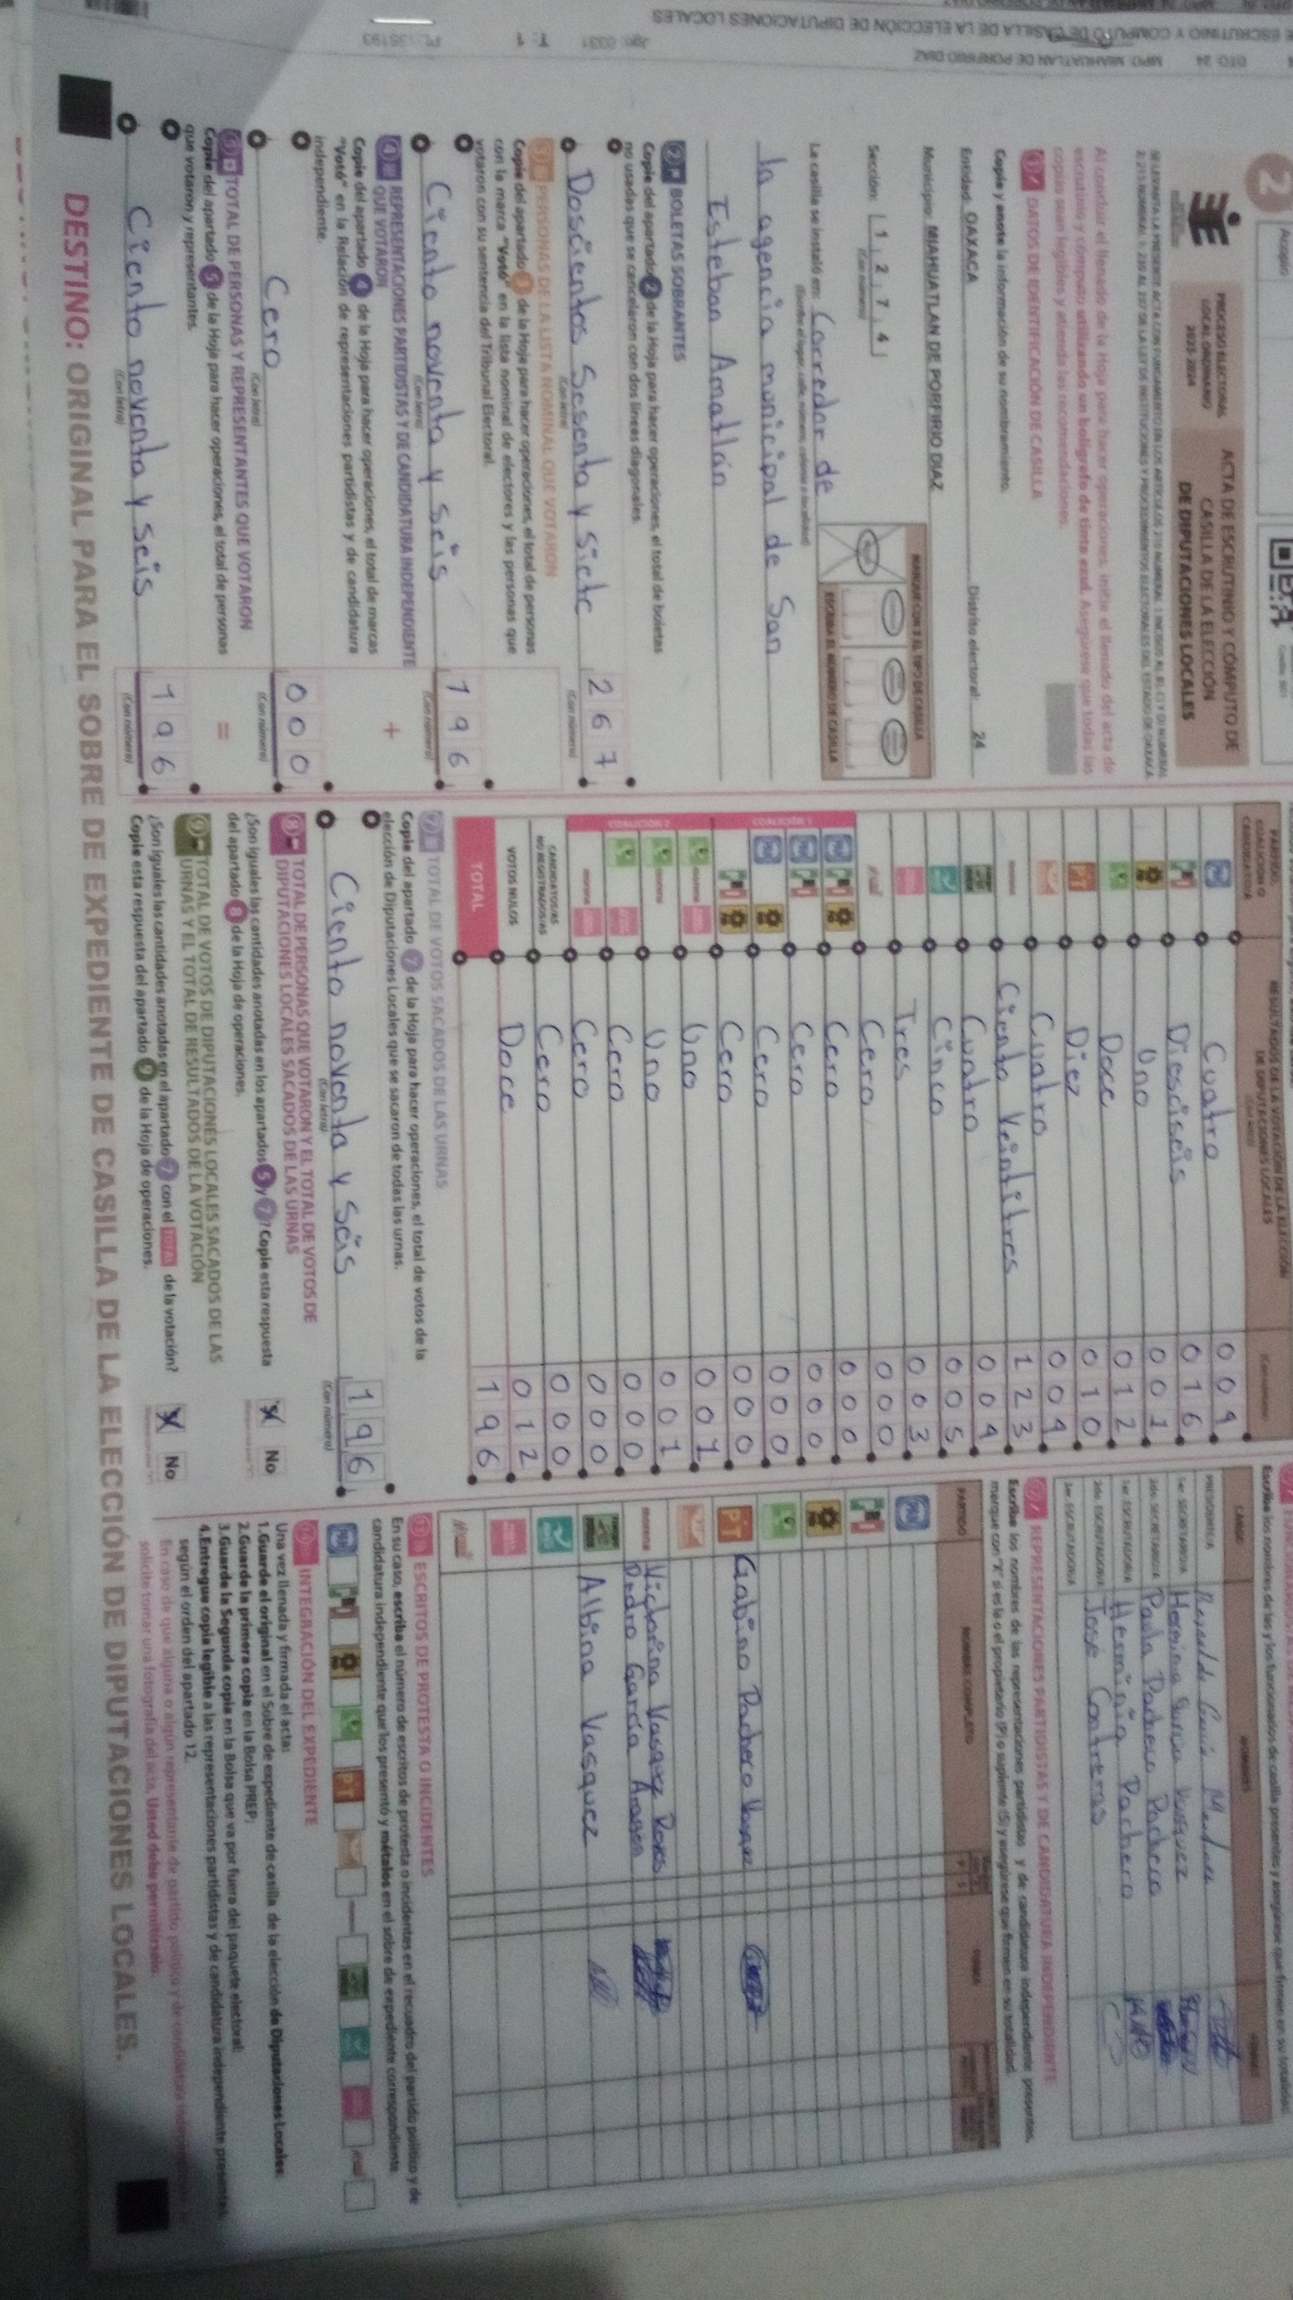 E ESCRUTINIO Y CÓMPUTO DE CASILLA DE LA ELECCIÓN DE DIPUTACIONES LOCALES
DTO: 24 MPO: MIAHUATLAN DE PORFIRIO DIAZ
T: 1
2
Acopio
PROCESO ELECTORAL LOCAL ORDINARIO 2023-2024
ACTA DE ESCRUTINIO Y CÓMPUTO DE CASILLA DE LA ELECCIÓN DE DIPUTACIONES LOCALES
Al concluir el llenado de la Hoja para hacer operaciones, inicie el llenado del acta de
escrutinio y cómputo utilizando un bolígrafo de tinta azul. Asegúrese que todas las
copias sean legibles y atienda las recomendaciones.
1 DATOS DE IDENTIFICACIÓN DE CASILLA
Copie y anote la información de su nombramiento.
Entidad: OAXACA Distrito electoral: 24
Municipio: MIAHUATLAN DE PORFIRIO DIAZ
Sección: 1 2 7 4
(Con número)
MARQUE CON X EL TIPO DE CASILLA
ESCRIBA EL NÚMERO DE CASILLA
La casilla se instaló en: Corredor de
la agencia municipal de San
Esteban Amatlán
2 BOLETAS SOBRANTES
Copie del apartado 2 de la Hoja para hacer operaciones, el total de boletas
no usadas que se cancelaron con dos líneas diagonales.
Doscientos Sesenta y siete 267
(Con letra) (Con número)
3 PERSONAS DE LA LISTA NOMINAL QUE VOTARON
Copie del apartado 3 de la Hoja para hacer operaciones, el total de personas
con la marca "Votó" en la lista nominal de electores y las personas que
votaron con su sentencia del Tribunal Electoral.
Ciento noventa y seis 196
(Con letra) (Con número)
4 REPRESENTACIONES PARTIDISTAS Y DE CANDIDATURA INDEPENDIENTE
QUE VOTARON +
Copie del apartado 4 de la Hoja para hacer operaciones, el total de marcas
"Votó" en la Relación de representaciones partidistas y de candidatura
independiente.
Cero 000
(Con letra) (Con número)
5 TOTAL DE PERSONAS Y REPRESENTANTES QUE VOTARON
Copie del apartado 5 de la Hoja para hacer operaciones, el total de personas =
que votaron y representantes.
Ciento noventa y seis 196
(Con letra) (Con número)
PARTIDO, COALICIÓN O CANDIDATURA
RESULTADOS DE LA VOTACIÓN DE LA ELECCIÓN DE DIPUTACIONES LOCALES
Cuatro 004
Diesciseis 016
Uno 001
Doce 012
PT Diez 010
Cuatro 004
Ciento Veintitres 123
Cuatro 004
Cinco 005
Tres 003
Cero 000
COALICIÓN 1
Cero 000
Cero 000
Cero 000
Cero 000
COALICIÓN 2
Uno 001
Uno 001
Cero 000
Cero 000
CANDIDATOS/AS NO REGISTRADOS/AS Cero 000
VOTOS NULOS Doce 012
TOTAL 196
7 TOTAL DE VOTOS SACADOS DE LAS URNAS
Copie del apartado 7 de la Hoja para hacer operaciones, el total de votos de la
elección de Diputaciones Locales que se sacaron de todas las urnas.
Ciento noventa y Seis 196
(Con letra) (Con número)
8 TOTAL DE PERSONAS QUE VOTARON Y EL TOTAL DE VOTOS DE
DIPUTACIONES LOCALES SACADOS DE LAS URNAS
¿Son iguales las cantidades anotadas en los apartados 5 y 7? Copie esta respuesta
del apartado 8 de la Hoja de operaciones. No
9 TOTAL DE VOTOS DE DIPUTACIONES LOCALES SACADOS DE LAS
URNAS Y EL TOTAL DE RESULTADOS DE LA VOTACIÓN
¿Son iguales las cantidades anotadas en el apartado 7 con el TOTAL de la votación?
Copie esta respuesta del apartado 9 de la Hoja de operaciones. No
Escriba los nombres de las y los funcionarios de casilla presentes y asegúrese que firmen en su totalidad.
CARGO NOMBRES FIRMAS
PRESIDENTE/A
1er. SECRETARIO/A
2do. SECRETARIO/A Paula Pacheco Pacheco
1er. ESCRUTADOR/A Herminia Pacheco
2do. ESCRUTADOR/A Jose Contreras
3er. ESCRUTADOR/A
REPRESENTACIONES PARTIDISTAS Y DE CANDIDATURA INDEPENDIENTE
Escriba los nombres de las representaciones partidistas y de candidatura independiente presentes,
marque con "X" si es la o el propietario (P) o suplente (S) y asegúrese que firmen en su totalidad.
PARTIDO NOMBRE COMPLETO
PT Gabino Pacheco Vasquez
morena Victorina Vasquez
Pedro Garcia Aragon
Albina Vasquez
ESCRITOS DE PROTESTA O INCIDENTES
En su caso, escriba el número de escritos de protesta o incidentes en el recuadro del partido político y de
candidatura independiente que los presentó y métalos en el sobre de expediente correspondiente.
PT
INTEGRACIÓN DEL EXPEDIENTE
Una vez llenada y firmada el acta:
1.Guarde el original en el Sobre de expediente de casilla de la elección de Diputaciones Locales.
2.Guarde la primera copia en la Bolsa PREP.
3.Guarde la Segunda copia en la Bolsa que va por fuera del paquete electoral.
4.Entregue copia legible a las representaciones partidistas y de candidatura independiente presentes,
según el orden del apartado 12.
solicite tomar una fotografía del acta, Usted debe permitírselo.
DESTINO: ORIGINAL PARA EL SOBRE DE EXPEDIENTE DE CASILLA DE LA ELECCIÓN DE DIPUTACIONES LOCALES.